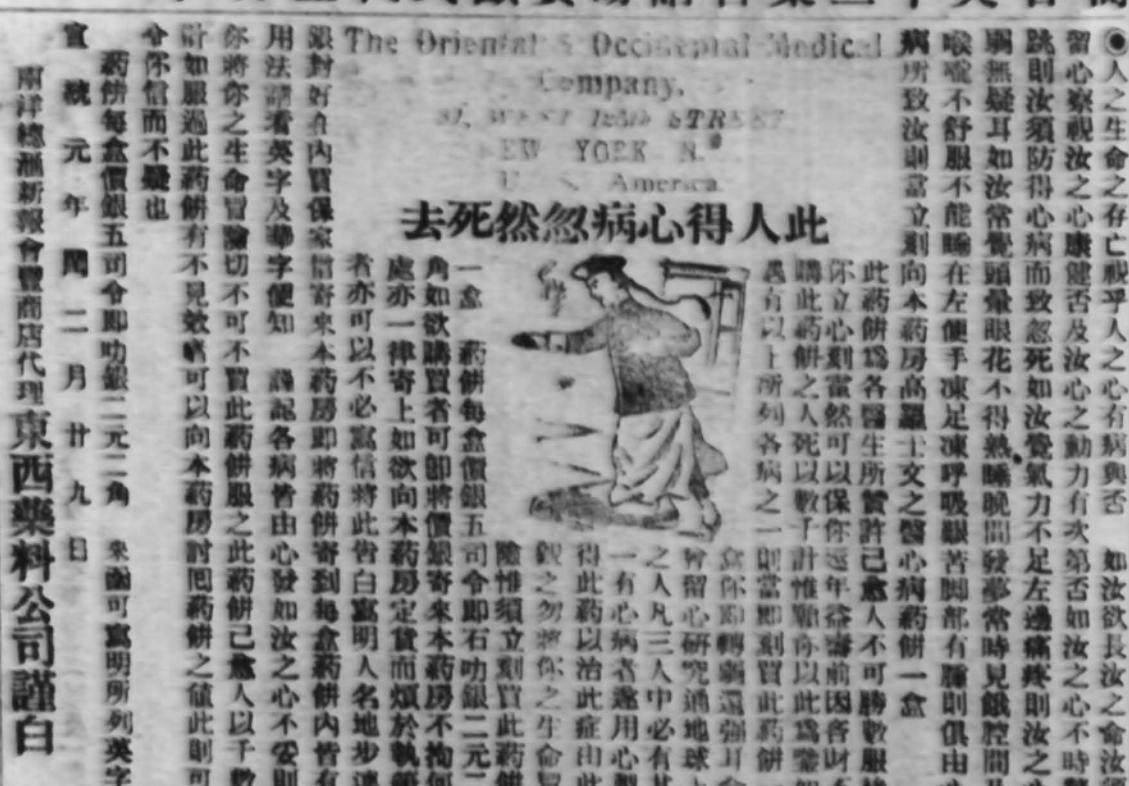 ◉人之生命之存亡視乎人之心有病與否　如汝欲長汝之命汝須
留心察視汝之心康健否及汝心之動力有次第否如汝之心不時
跳則汝須防得心病而致忽死如汝覺氣力不足左邊痛疼則汝之
弱無疑耳如汝常覺頭暈眼花不得熟睡晚間發夢常時見餓腔間
喉嚨不舒服不能睡在左便手凍足凍呼吸艱苦脚部有腫則俱由
病所致汝則當立刻向本药房高羅士文之醫心病药餅一盒
The Oriental & Occidental Medical
Company,
31, WEST 125th STREET
NEW YORK N.
U. S. America
此人得心病忽然死去
此药餅爲各醫生所贊許已愈人不可勝數服
你立心刻當然可以保你延年益壽前因吝財
購此药餅之人死以數千計惟願你以此爲鑒
遇有以上所列各病之一則當即刻買此药餅
盒你即轉弱還強耳
曾留心研究通地球
之人凡三人中必有
一有心病者遂用心
得此药以治此症由此
觀之勿將你之生命冒
險惟須立刻買此药餅
一盒　药餅每盒價銀五司令即石叻銀二元二
角如欲購買者可即將價銀寄來本药房不拘何
處亦一律寄上如欲向本药房定貨而煩於執筆
者亦可以不必寫信將此告白寫明人名地步連
銀封好在內買保家信寄來本药房即將药餅寄到每盒药餅內皆有
用法請看英字及華字便知　尋記各病皆由心發如汝之心不妥則
你將你之生命冒險切不可不買此药餅服之此药餅已愈人以千數
計如服過此药餅有不見效者可以向本药房討囘药餅之値此則可
令你信而不疑也
药餅每盒價銀五司令即叻銀二元二角　來函可寫明所列英字
宣統元年閏二月廿九日
南洋總滙新報會豐商店代理東西藥料公司謹白